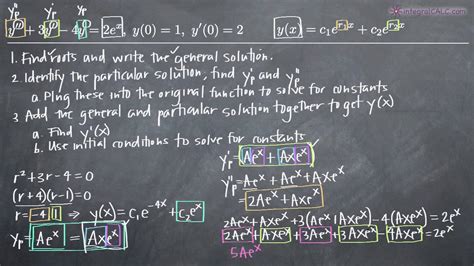 integralCALC.com
y_p'' y_p' y_p
y'' + 3y' - 4y = 2e^x, y(0) = 1, y'(0) = 2 y(x) = c₁e^{r₁x} + c₂e^{r₂x}
1. Find roots and write the general solution.
2. Identify the particular solution, find y_p' and y_p''
a. Plug these into the original function to solve for constants
3 Add the general and particular solution together to get y(x)
a. Find y'(x)
b. Use initial conditions to solve for constants
r² + 3r - 4 = 0
(r+4)(r-1) = 0
r = -4, 1 → y(x) = c₁e^{-4x} + c₂e^x
y_p = Ae^x = Axe^x
y_p' = Ae^x + Axe^x
y_p'' = Ae^x + Ae^x + Axe^x
= 2Ae^x + Axe^x
2Ae^x + Axe^x + 3(Ae^x + Axe^x) - 4(Axe^x) = 2e^x
2Ae^x + Axe^x + 3Ae^x + 3Axe^x - 4Axe^x = 2e^x
5Ae^x